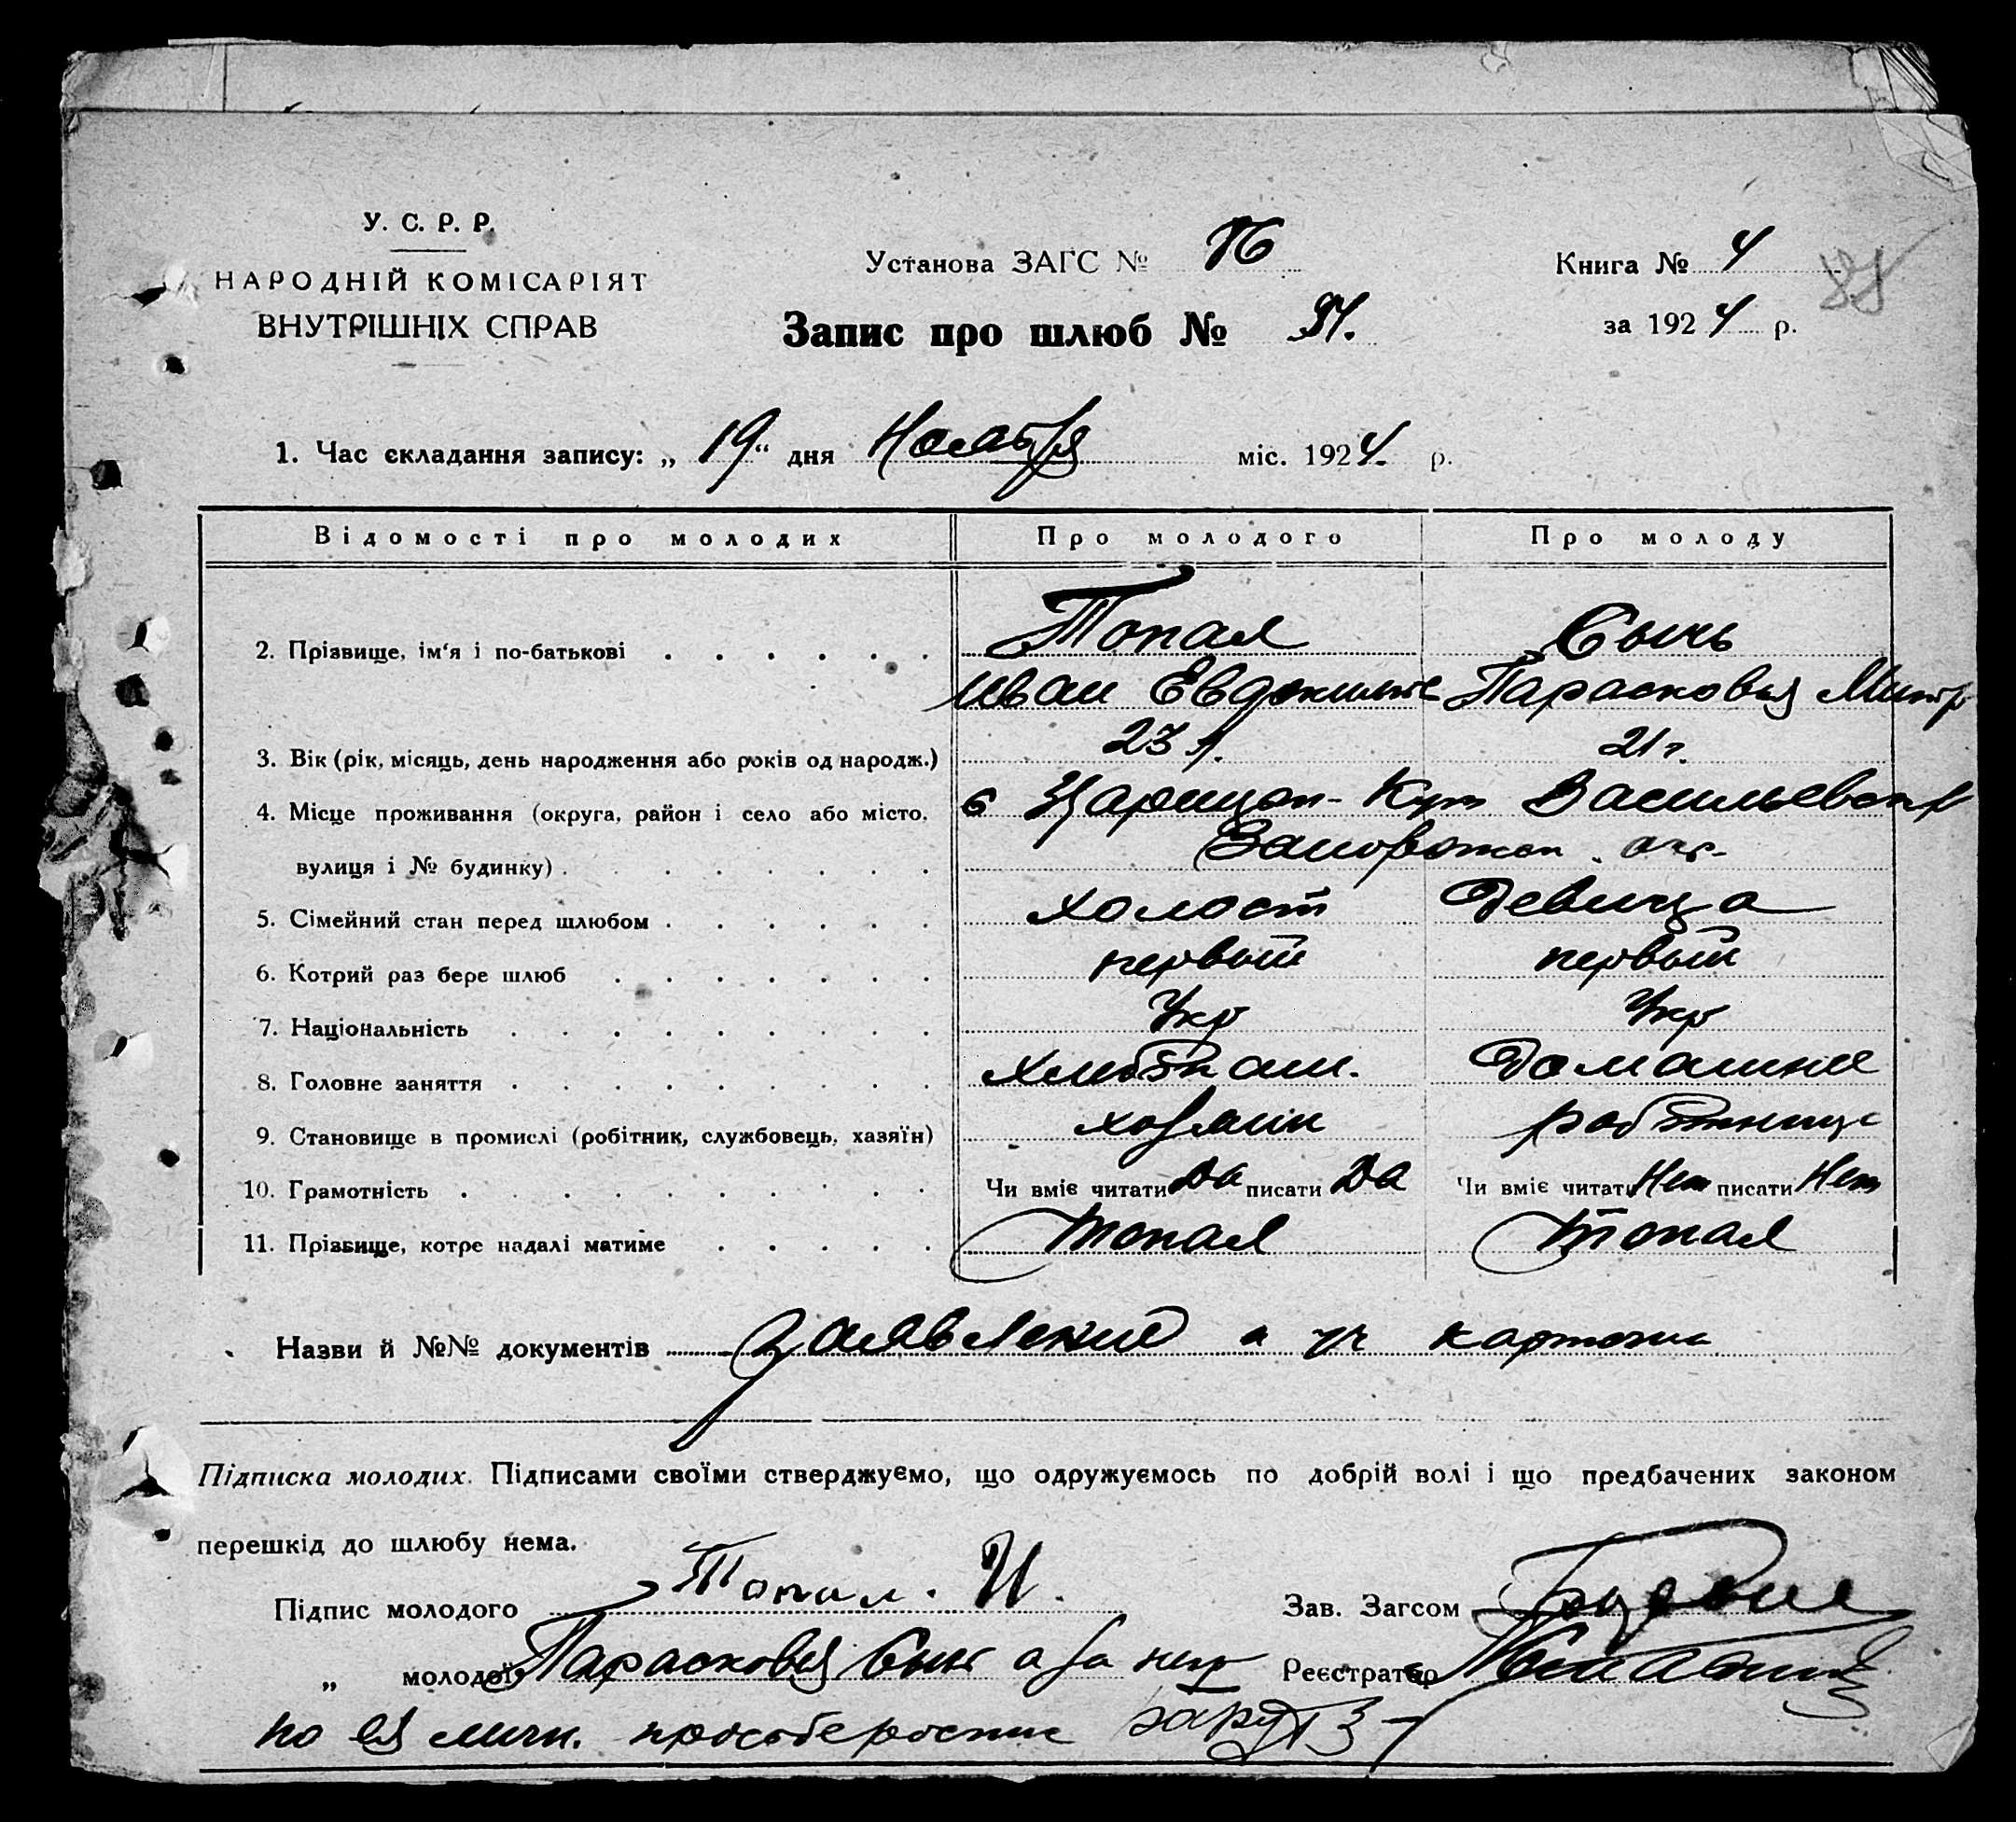 У. С. Р. Р.
НАРОДНІЙ КОМІСАРІЯТ
ВНУТРІШНІХ СПРАВ
Установа ЗАГС №
Запис про шлюб № 91.
Книга № 4
за 1924 р.
1. Час складання запису: „19“ дня Ноября міс. 1924. р.
Відомості про молодих Про молодого Про молоду
Топал Сычь
2. Прізвище, ім'я і по-батькові
Иван Парасковья Митр
3. Вік (рік, місяць, день народження або років од народж.) 23 л. 21 г.
4. Місце проживання (округа, район і село або місто, с Царицын-Кут Васильевск р
вулиця і № будинку) Запорожск. окр.
5. Сімейний стан перед шлюбом холост девица
6. Котрий раз бере шлюб первый первый
7. Національність Укр Укр
8. Головне заняття хлебопаш. Домашнее
9. Становище в промислі (робітник, службовець, хазяїн) хозяин работница
10. Грамотність Чи вміє читати Да писати Да Чи вміє читати Нет писати Нет
11. Прізвище, котре надалі матиме Топал Топал
Назви й №№ документів заявление и уч карточки
Підписка молодих. Підписами своїми стверджуємо, що одружуємось по добрій волі і що предбачених законом
перешкід до шлюбу нема.
Підпис молодого Топал. И. Зав. Загсом
„ молодої Парасковья Сычь а за негр Реєстратор
по ея личн. просьбе